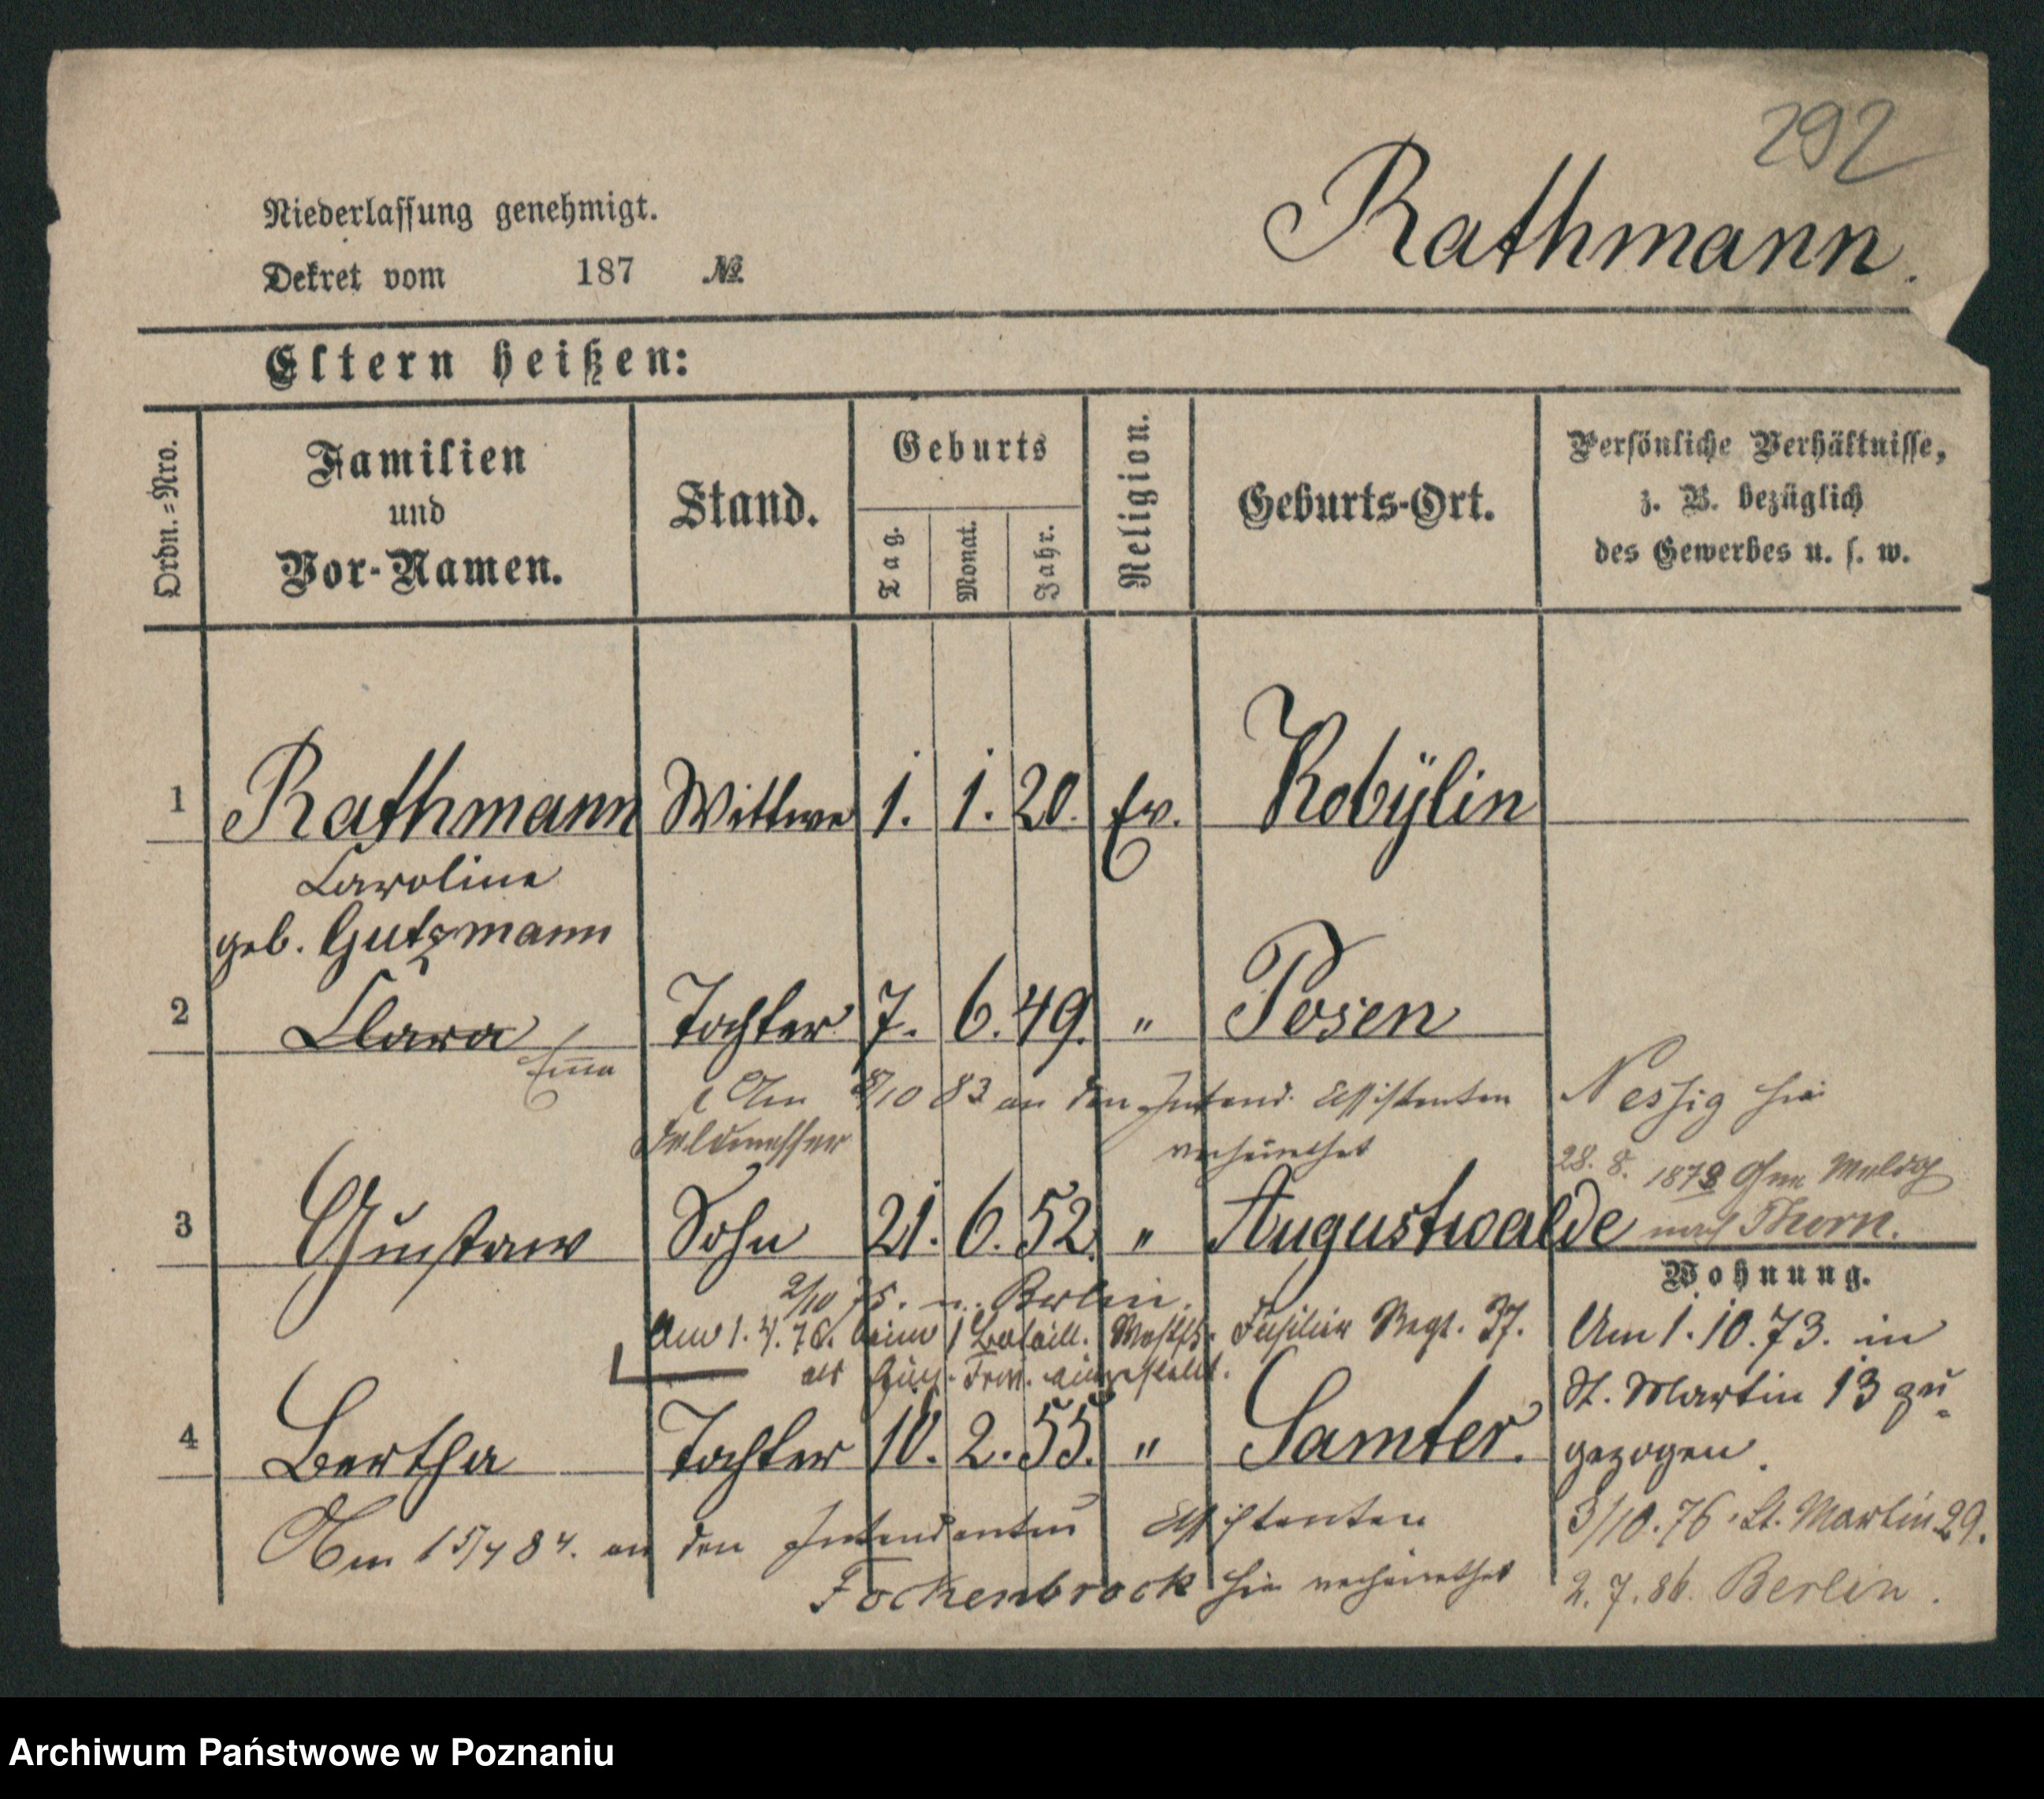 292
Rathmann.
Niederlassung genehmigt.
Dekret vom 187 №
Eltern heißen:
Ordn.=Nro.
Familien
und
Vor-Namen.
Stand.
Geburts
Tag.
Monat.
Jahr.
Religion.
Geburts-Ort.
Persönliche Verhältnisse,
z. B. bezüglich
des Gewerbes u. s. w.
1 Rathmann Wittwe 1. 1. 20. Ev. Kobÿlin
Caroline
geb. Gutzmann
2 Clara Tochter 7. 6. 49. " Posen
Emma
Am 8/10 83 an den Intend. Assistenten Nessig hie
verheirathet
Feldmesser
28. 8. 1878 Ohne Meldg
3 Gustaw Sohn 21. 6. 52. " Augustwalde nach Thorn.
2/10 75. n. Berlin.
Am 1. 4. 76. beim 1 Bataill. Westfh. Füsilier Regt. 37.
als Einj. Freiw. eingestellt.
4 Bertha Tochter 10. 2. 55. " Samter.
Am 15/4 84. an den Intendantur Assistenten
Fockenbrock hie verheirathet
Wohnung.
Am 1. 10. 73. in
St. Martin 13 zu-
gezogen.
3/10. 76. St. Martin 29.
2. 7. 86. Berlin.
Archiwum Państwowe w Poznaniu